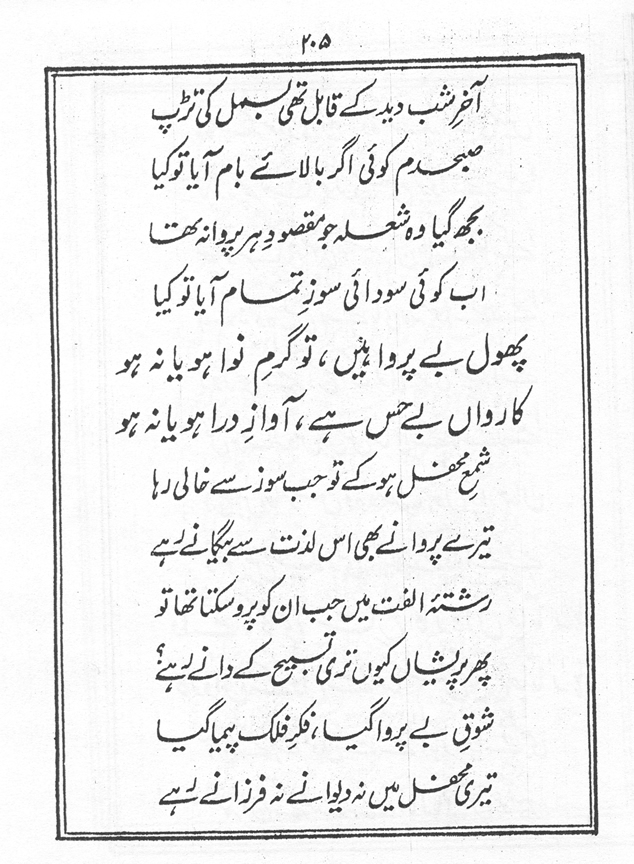 ۲۰۵
آخرِ شب دید کے قابل تھی بسمل کی تڑپ
صبحدم کوئی اگر بالائے بام آیا تو کیا
بجھ گیا وہ شعلہ جو مقصودِ ہر پروانہ تھا
اب کوئی سودائی سوزِ تمام آیا تو کیا
پھول بے پروا ہیں، تو گرمِ نوا ہو یا نہ ہو
کارواں بے حس ہے، آوازِ درا ہو یا نہ ہو
شمعِ محفل ہو کے تو جب سوز سے خالی رہا
تیرے پروانے بھی اس لذت سے بیگانے رہے
رشتۂ الفت میں جب ان کو پرو سکتا تھا تو
پھر پریشاں کیوں تری تسبیح کے دانے رہے؟
شوقِ بے پروا گیا، فکرِ فلک پیما گیا
تیری محفل میں نہ دیوانے نہ فرزانے رہے